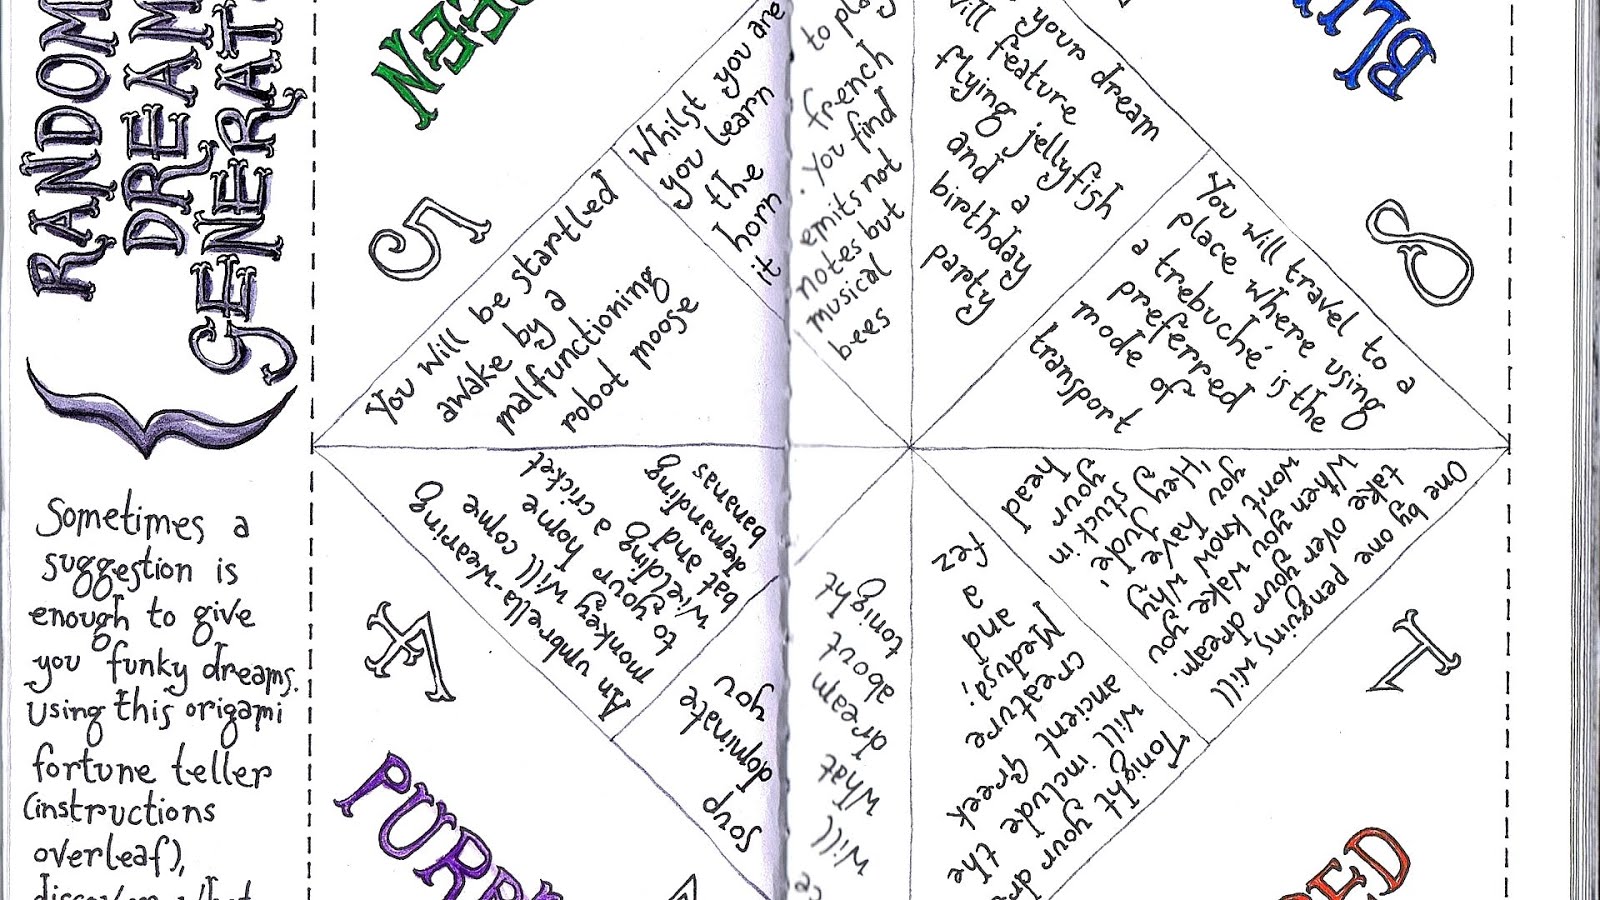 RANDOM
DREAM
GENERAT
Sometimes a
suggestion is
enough to give
you funky dreams.
Using this origami
fortune teller
(instructions
overleaf),
EEN
5
You will be startled
awake by a
malfunctioning
robot moose
Whilst you are
you learn
the
horn
it
to play
french
. You find
emits not
notes but
musical
bees
your dream
will feature
flying jellyfish
and a
birthday
party
BLU
8
You will travel to a
place where using
a trebuché is the
preferred
mode of
transport
One by one penguins will
take over your dream.
When you wake you
wont know why
you have
'Hey Jude'
stuck in
your
head
1
RED
Tonight your dr
will include the
ancient Greek
creature
Medusa!
and
a
fez
will
what
dream
about
tonight
soup
dominate
you
An umbrella-wearing
monkey will come
to your home
wielding a cricket
bat and
demanding
bananas
4
PURP